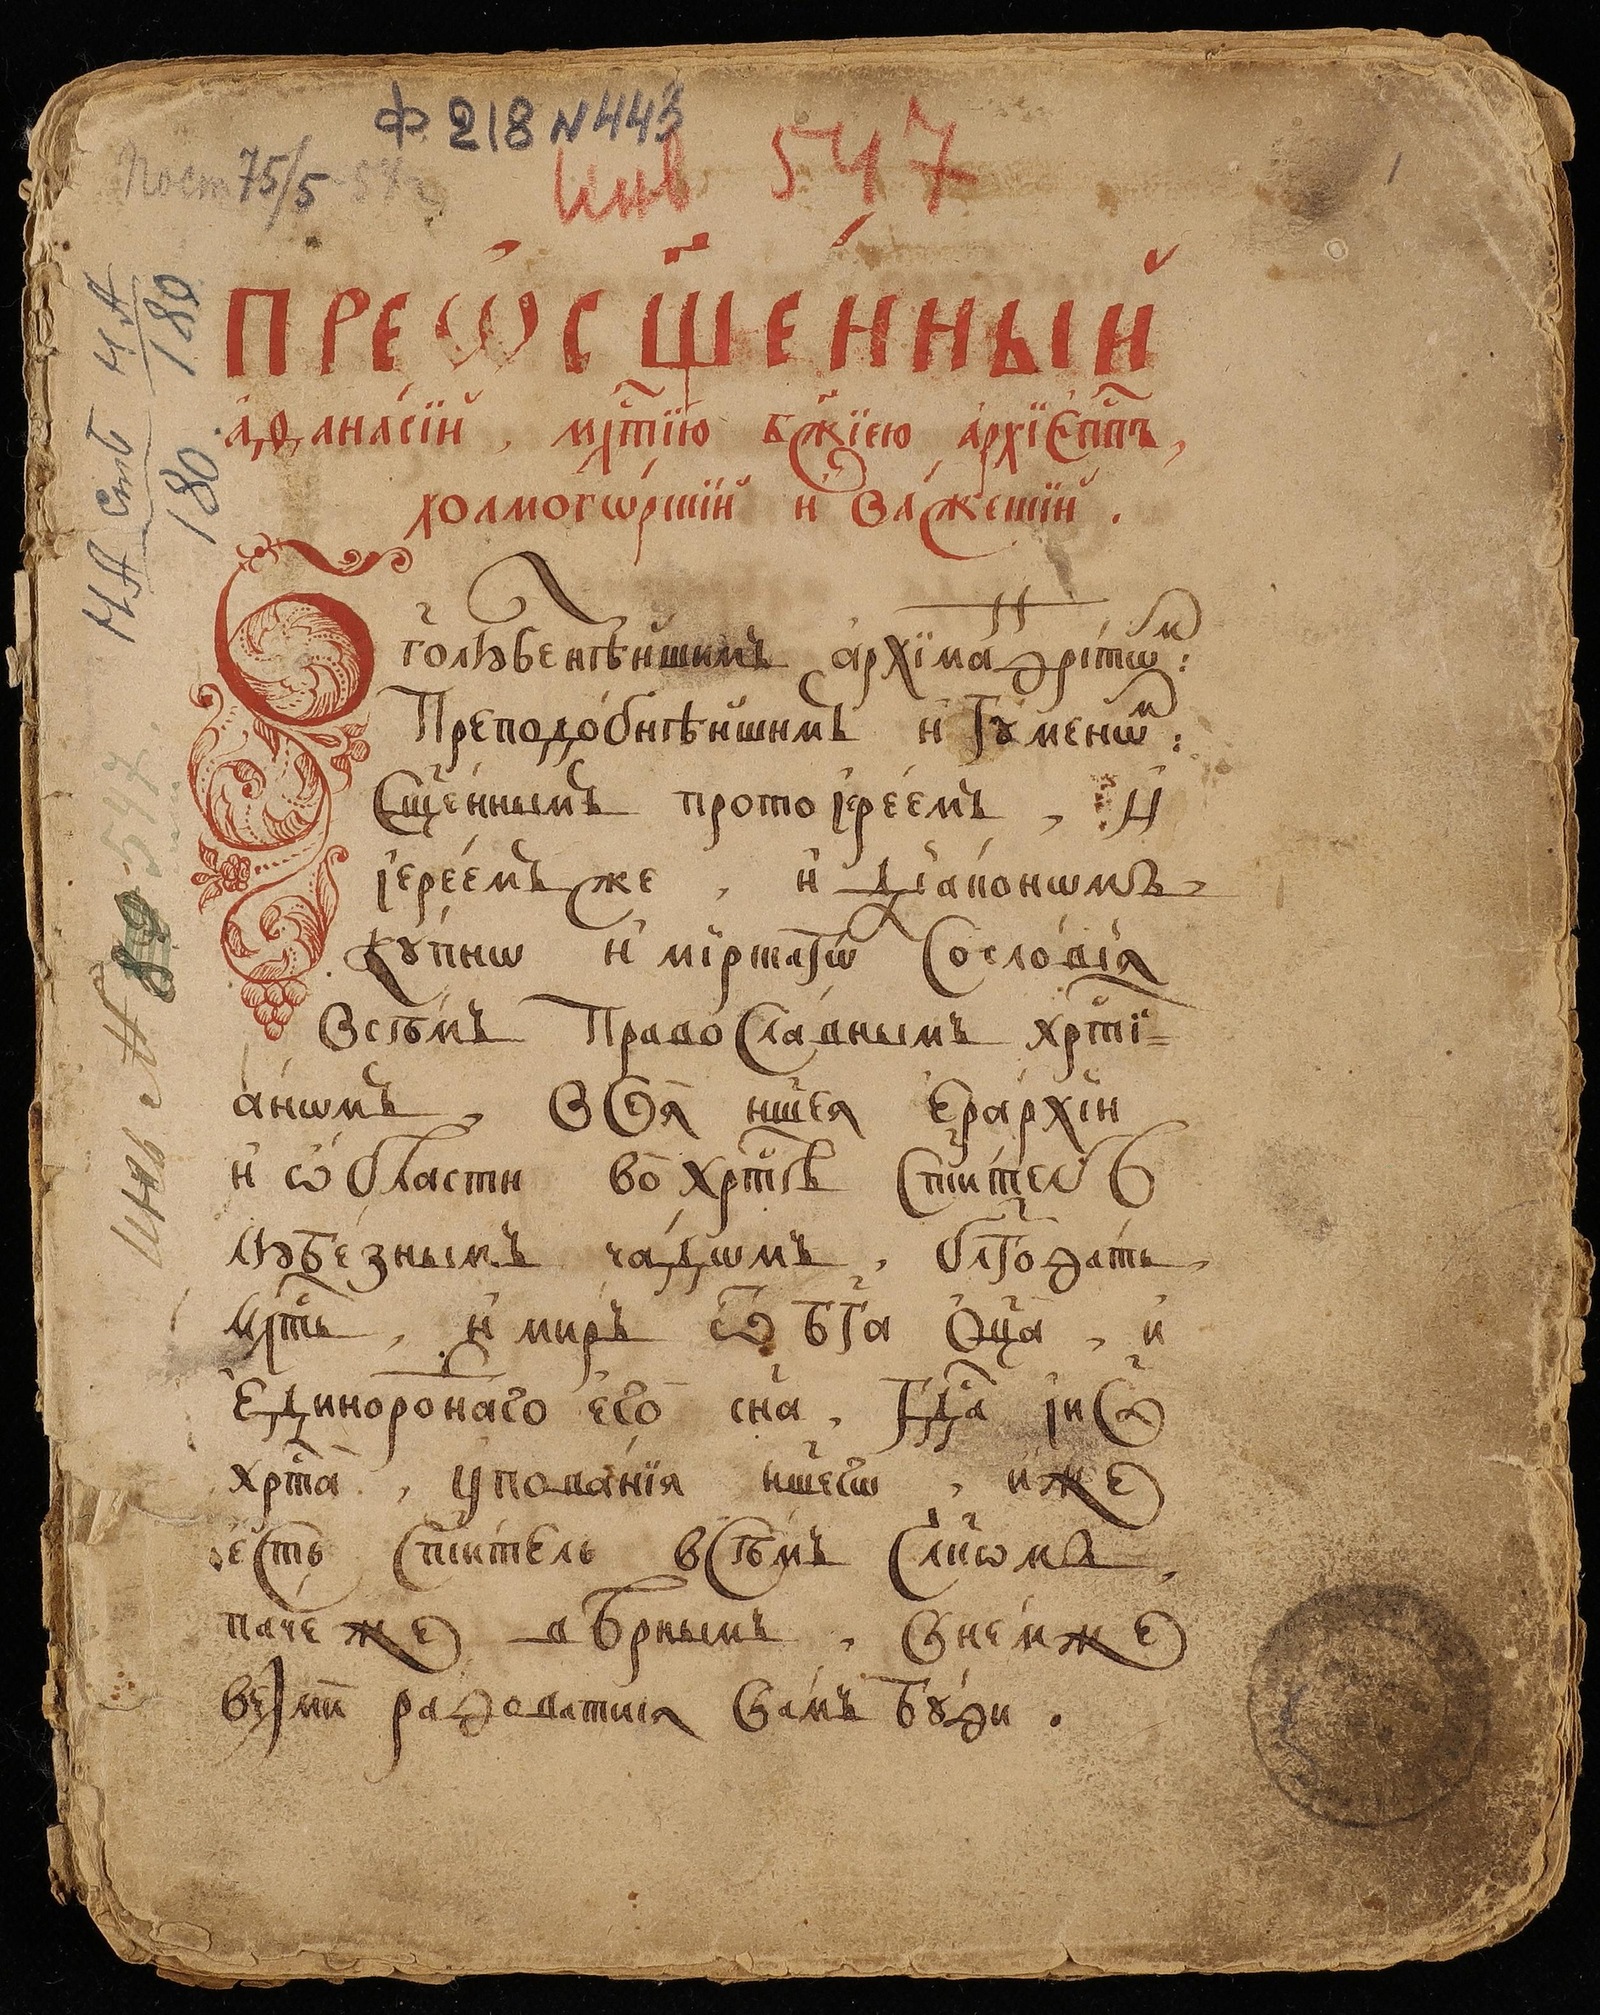 ф. 218 N 443
Пост 75/5-57г
Инв 547
ПРЕѠСЩЕ́ННЫЙ
Аѳана́сїй, млⷭ҇тїю бж҃їею а҆рхїепⷭ҇пъ,
холмого́рскїй и҆ ва́жескїй.
Бг҃олюбезнѣ́йшимъ а҆рхїмандрі́тѡмъ:
Преподо́бнѣйшимъ и҆гꙋ́менѡмъ:
Сщ҃е́ннымъ протоїере́емъ, И҆
їере́емъ же, и҆ дїа́конѡмъ
кꙋ́пнѡ и҆ мірска́гѡ сосло́вїѧ
Всѣ́мъ Правосла́внымъ хрⷭ҇тїа-
а́нѡмъ, всеѧ̀ нш҃еѧ є҆ра́рхїи
и҆ ѻ҆́бласти во хрⷭ҇тѣ̀ сп҃си́телѣ
любе́знымъ ча́дѡмъ, блг҃ода́ть
млⷭ҇ть, и҆ миръ ѿ бг҃а ѻ҆ц҃а̀, и҆
є҆диноро́днаго є҆гѡ̀ сн҃а, гдⷭ҇а і҆и҃са
хрⷭ҇та̀, ᲂу҆пова́нїѧ нш҃егѡ, и҆́же
є҆́сть сп҃си́тель всѣ́мъ чл҃кѡмъ,
па́че же вѣ́рнымъ, ѡ не́мже
ра́доватисѧ ва́мъ бꙋ́ди.
ИА СПб ИА
180 180
Инв № 547